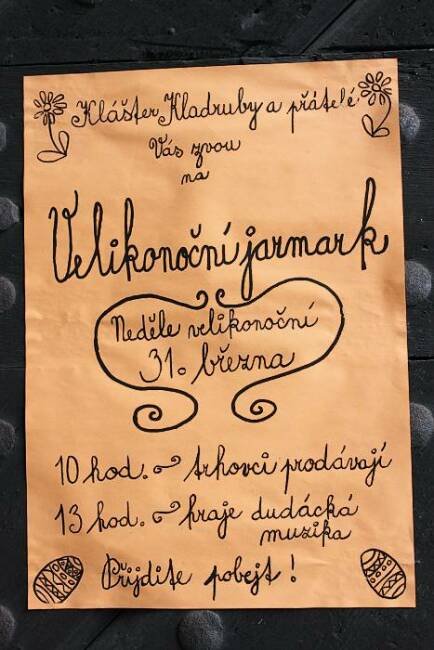 Klášter Kladruby a přátelé
Vás zvou
na
Velikonoční jarmark
Neděle velikonoční
31. března
10 hod. trhovci prodávají
13 hod. hraje dudácká
muzika
Přijdite pobejt!